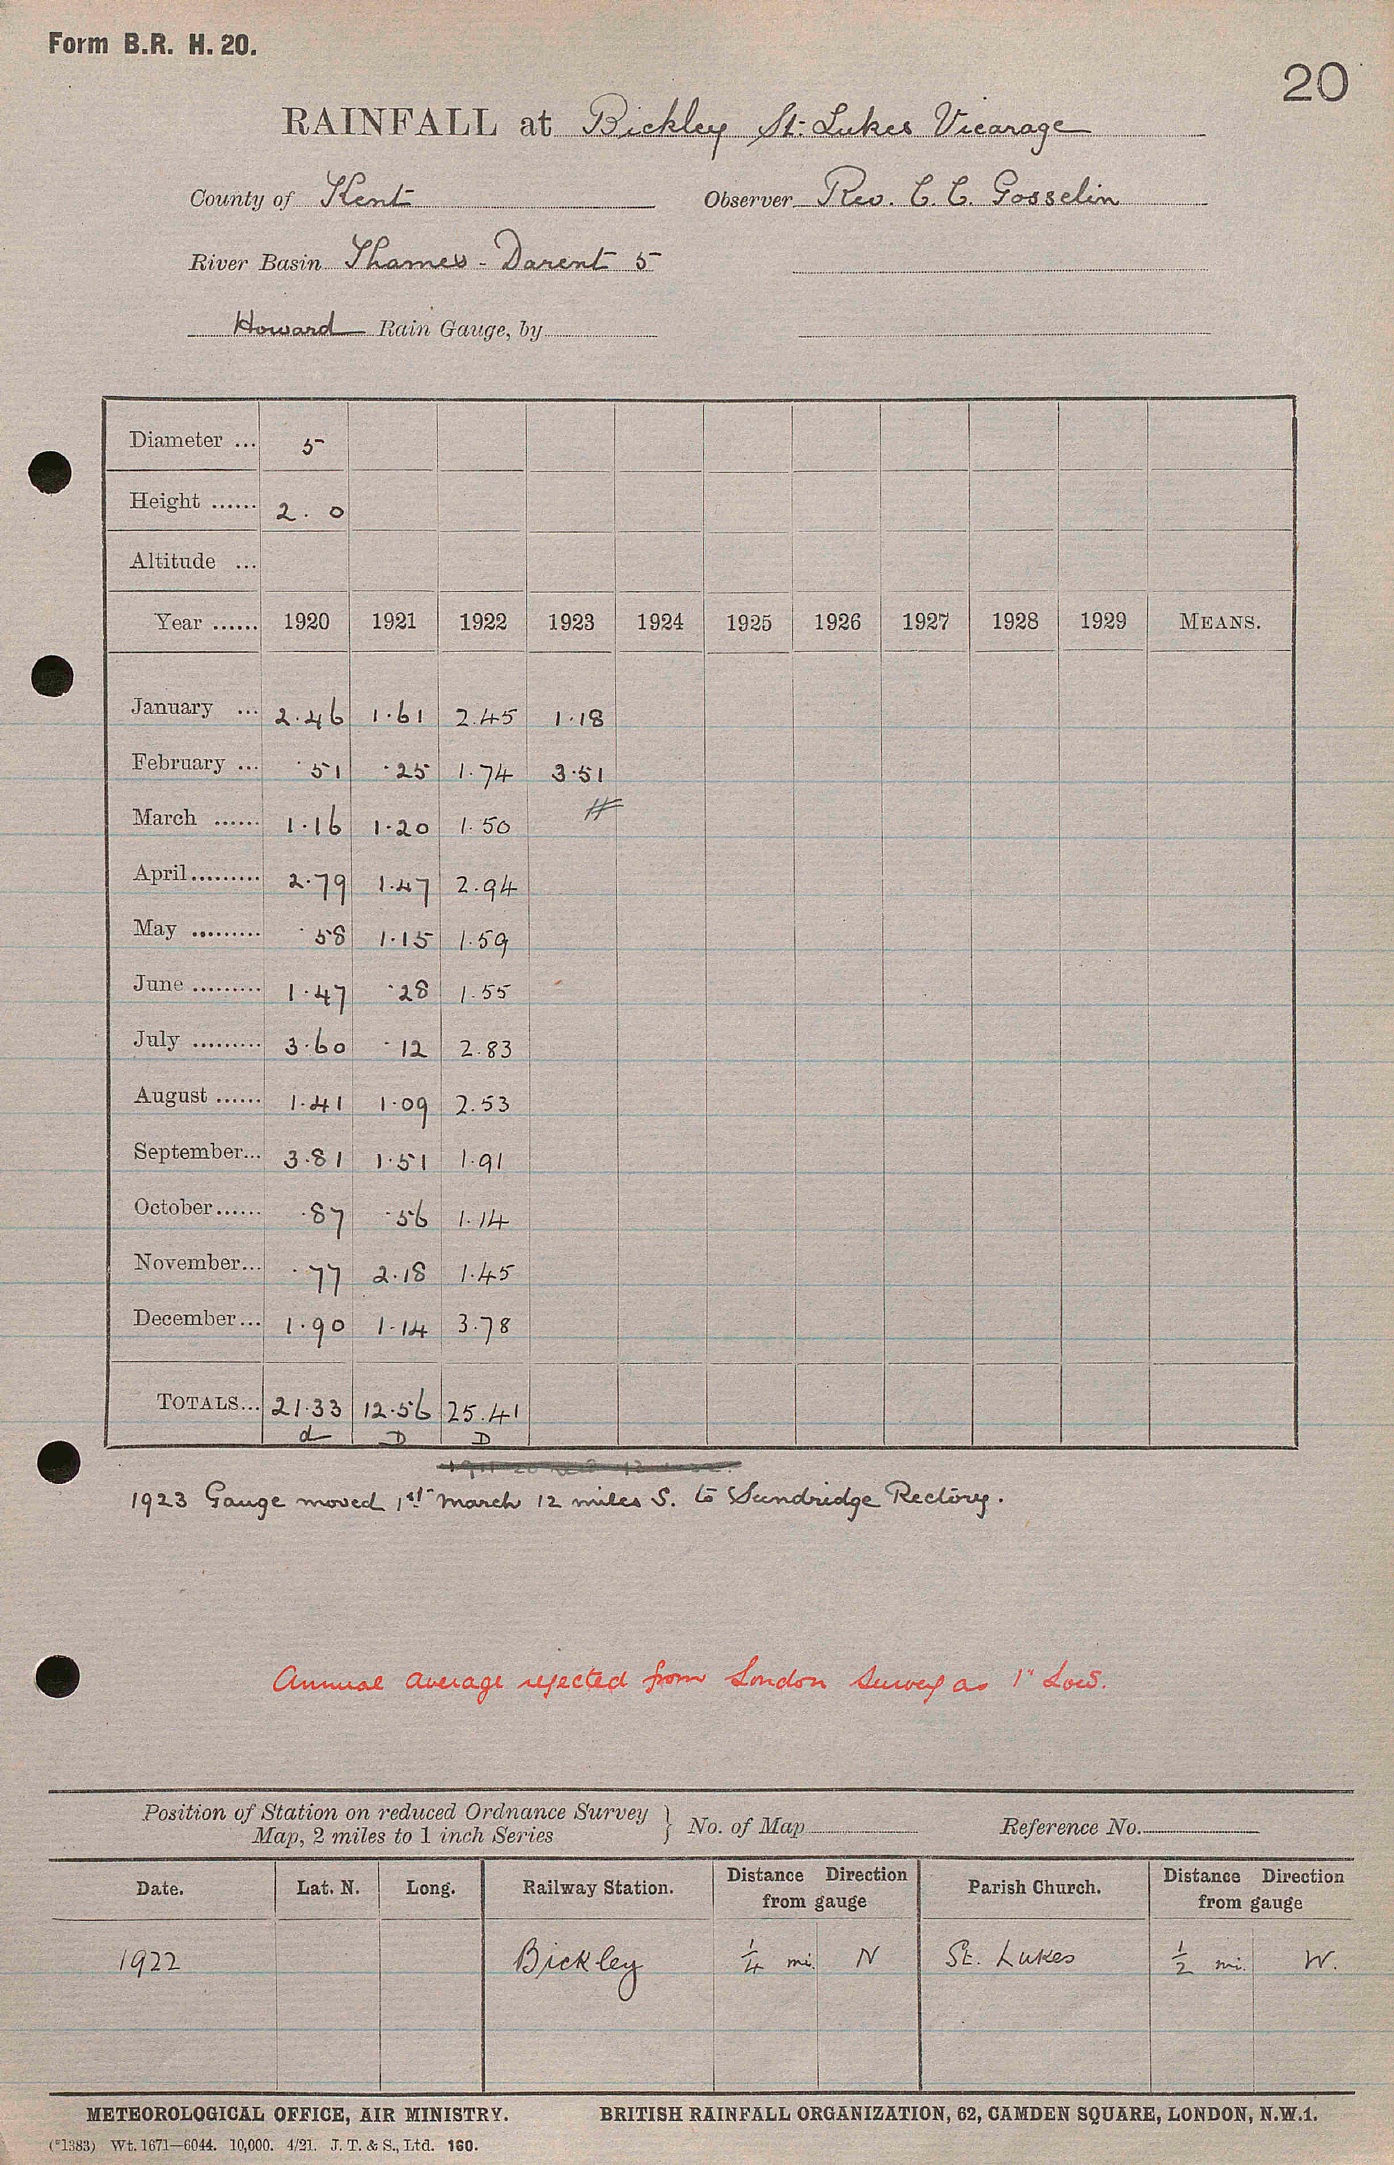 Form B.R. H. 20.
20
RAINFALL at Bickley St. Lukes Vicarage
County of Kent Observer Rev. C. C. Gosselin
River Basin Thames - Darent 5
Howard Rain Gauge, by
Diameter ... 5
Height ...... 2. 0
Altitude ...
Year ...... 1920 1921 1922 1923 1924 1925 1926 1927 1928 1929 MEANS.
January ... 2.46 1.61 2.45 1.18
February ... .51 .25 1.74 3.51
March ...... 1.16 1.20 1.50
April ......... 2.79 1.47 2.94
May ......... .58 1.15 1.59
June ......... 1.47 .28 1.55
July ......... 3.60 .12 2.83
August ...... 1.41 1.09 2.53
September... 3.81 1.51 1.91
October ...... .87 .56 1.14
November... .77 2.18 1.45
December... 1.90 1.14 3.78
TOTALS... 21.33 12.56 25.41
d D D
1923 Gauge moved 1st March 12 miles S. to Sundridge Rectory.
Annual average rejected from London Survey as 1" Low.
Position of Station on reduced Ordnance Survey
Map, 2 miles to 1 inch Series } No. of Map Reference No.
Date. Lat. N. Long. Railway Station. Distance Direction from gauge Parish Church. Distance Direction from gauge
1922 Bickley 1/4 mi. N St. Lukes 1/2 mi. W.
METEOROLOGICAL OFFICE, AIR MINISTRY. BRITISH RAINFALL ORGANIZATION, 62, CAMDEN SQUARE, LONDON, N.W.1.
(*1383) Wt. 1671—6044. 10,000. 4/21. J. T. & S., Ltd. 160.